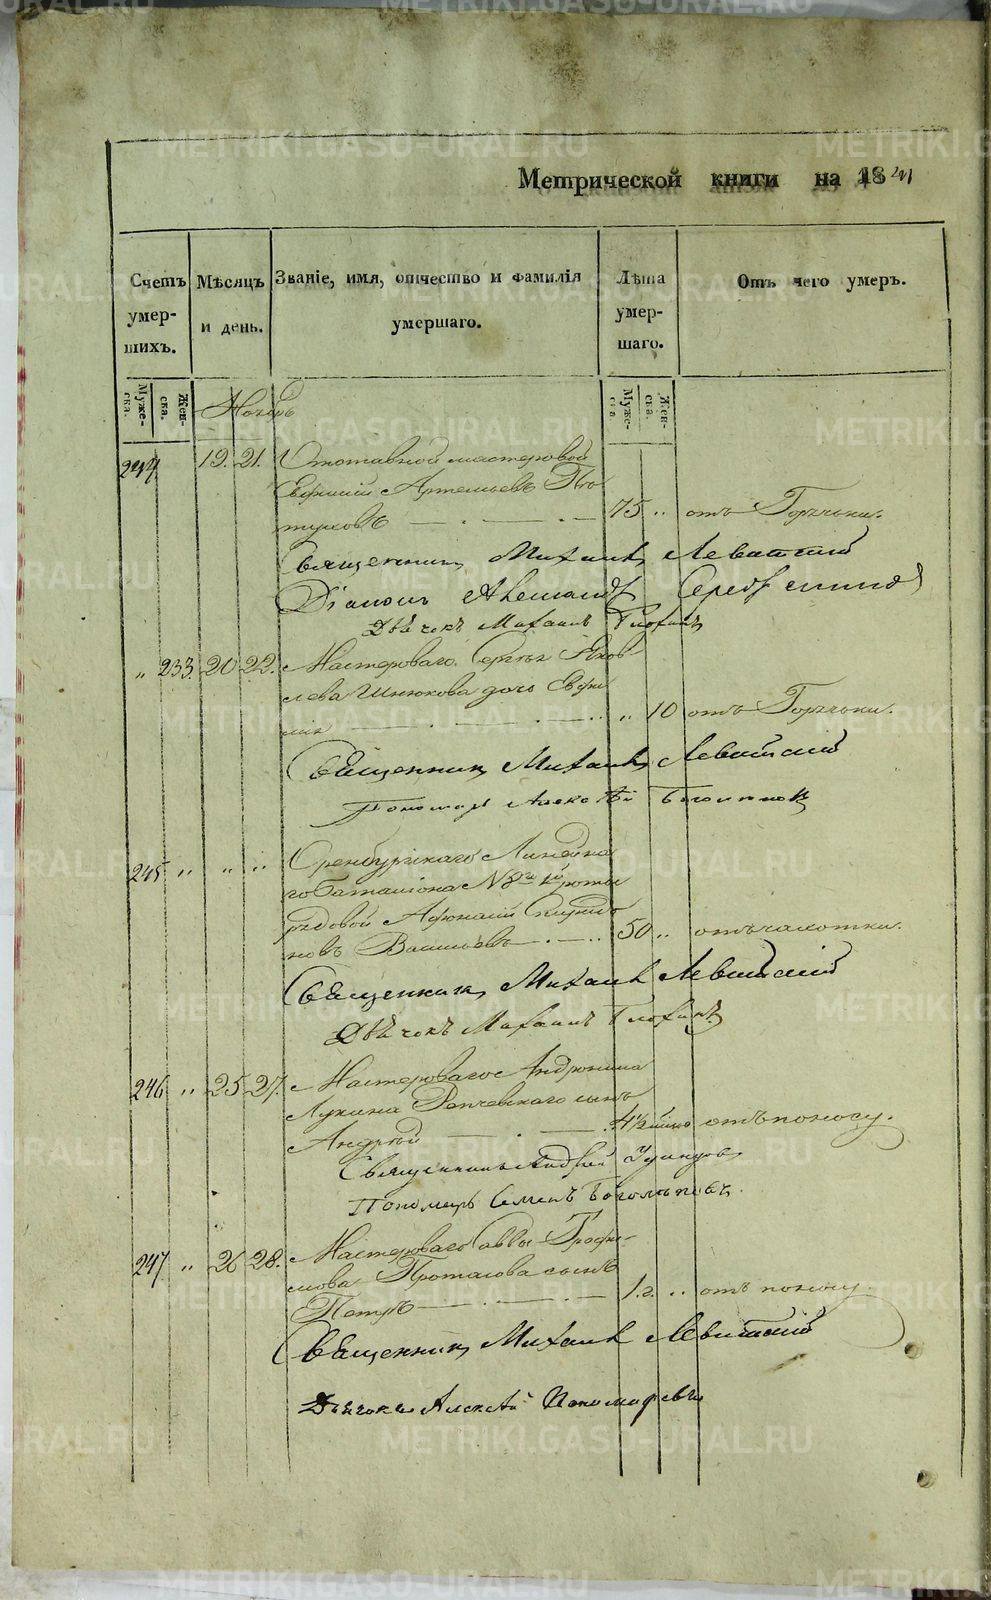 METRIKI.GASO-URAL.RU
Метрической книги на 1841
Счетъ умер-шихъ.
Мѣсяцъ и день.
Званіе, имя, отчество и фамилія умершаго.
Лѣта умер-шаго.
Отъ чего умеръ.
Муже-ска. Жен-ска.
Муже-ска Жен-ска.
Ноябрь
244 19. 21. Отставной мастеровой
Ефимій Артемьевъ
75 „ отъ Горячьки.
Священникъ Михаилъ Левитскій
Діаконъ Александръ
Дьячокъ Михаилъ
„ 233. 20 22. Мастероваго Сергѣя Яков-
лева дочь Ефи-
мія „ 10 отъ Горячьки.
Священникъ Михаилъ Левитскій
Пономарь Алексѣй
245 „ „ „ Оренбургскаго Линейна-
го Баталіона № роты
рядовой Афонасій
новъ Васильевъ 50 „ отъ чахотки.
Священникъ Михаилъ Левитскій
Дьячокъ Михаилъ
246 „ 25 27. Мастероваго Андроника
Лукина сынъ
Андрей отъ поносу.
Священникъ Андрей Удинцовъ
Пономарь Семенъ Богомоловъ.
247 „ 26 28. Мастероваго Саввы Трофи-
мова Протасова сынъ
Петръ 1.г. „ отъ поносу.
Священникъ Михаилъ Левитскій
Дьячокъ Алексѣй Пономаревъ